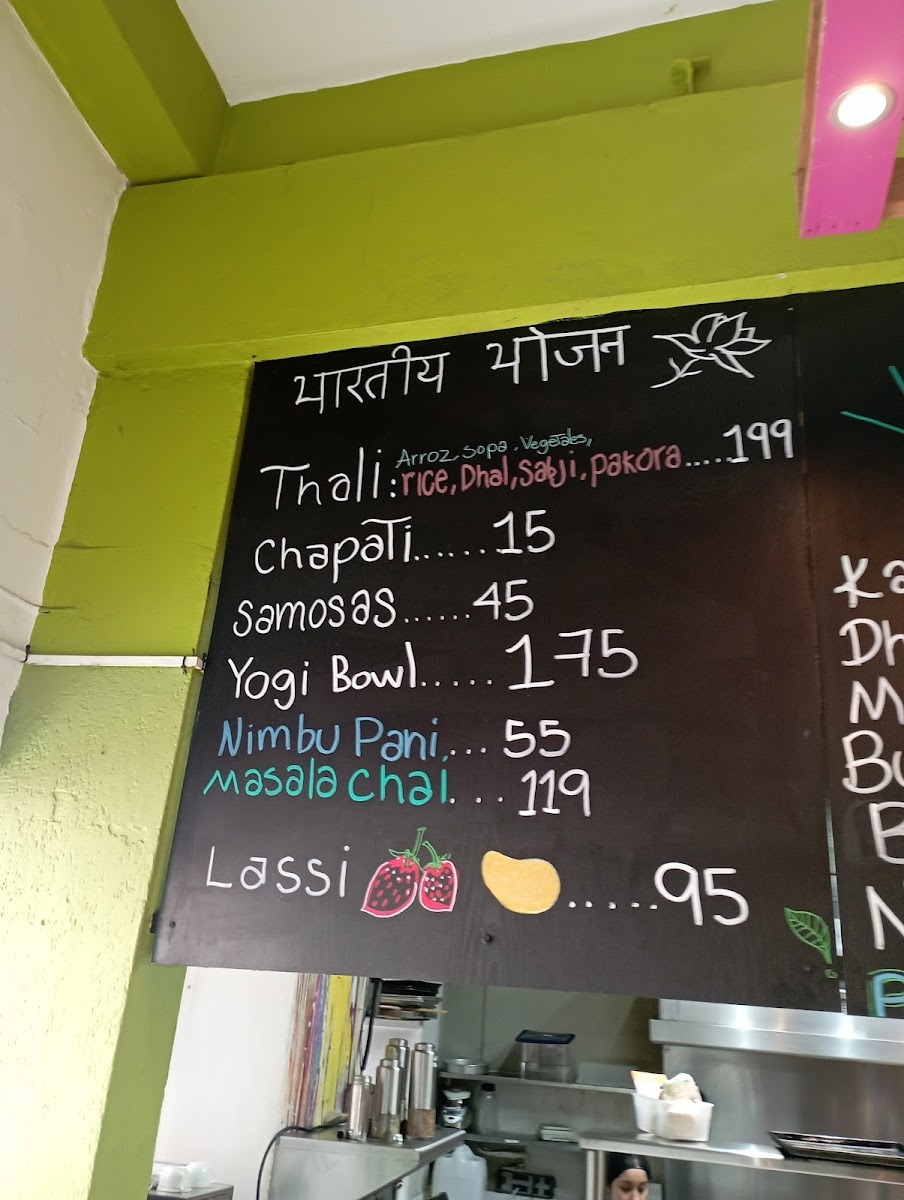 भारतीय भोजन
Arroz. Sopa. Vegetales,
Thali: rice, Dhal, Sabji, pakora.....199
Chapati......15
Samosas......45
Yogi Bowl.....175
Nimbu Pani....55
Masala Chai....119
Lassi.....95
Ka
Dh
M
Bu
B